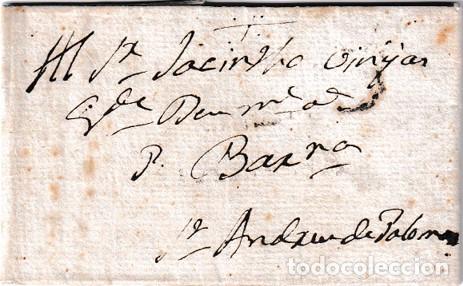 Sr Jacintho Vinyas
q Deu m a
P. Barna
Sr Andreu de Palomar
todocoleccion